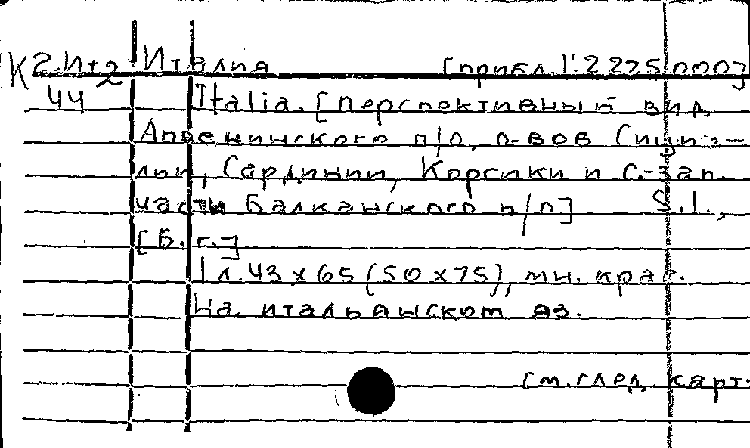 К 2.Ит2 Италия [прибл. 1:2 225 000]
44 Italia. [Перспективный вид
Апеннинского п/о, о-вов Сици-
лии, Сардинии, Корсики и с.-зап.
части Балканского п/о] S.l.,
[б.г.]
1 л. 43 x 65 (50 x 75), мн. крас.
На итальянском яз.
см. след. карт.